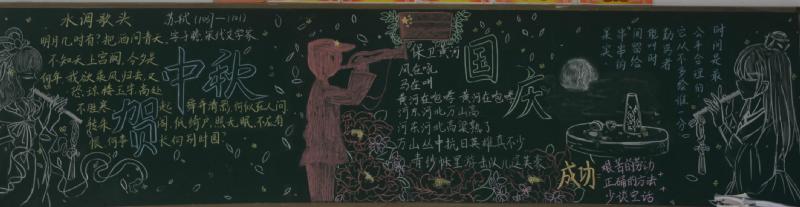 水调歌头
苏轼(1037—1101)
字子瞻,宋代文学家
明月几时有?把酒问青天。
不知天上宫阙,今夕是
何年。我欲乘风归去,又
恐琼楼玉宇,高处
不胜寒。
起舞弄清影,何似在人间
转朱阁,低绮户,照无眠。不应有
恨,何事长向别时圆
贺中秋
国庆
保卫黄河
风在吼
马在叫
黄河在咆哮 黄河在咆哮
河东河北万山高
河东河北高粱熟了
万山丛中抗日英雄真不少
时间是最
公平合理的
它从不多给谁一分
勤劳者
能叫时
间留给
串串的
果实
成功
艰苦的劳动
正确的方法
少谈空话